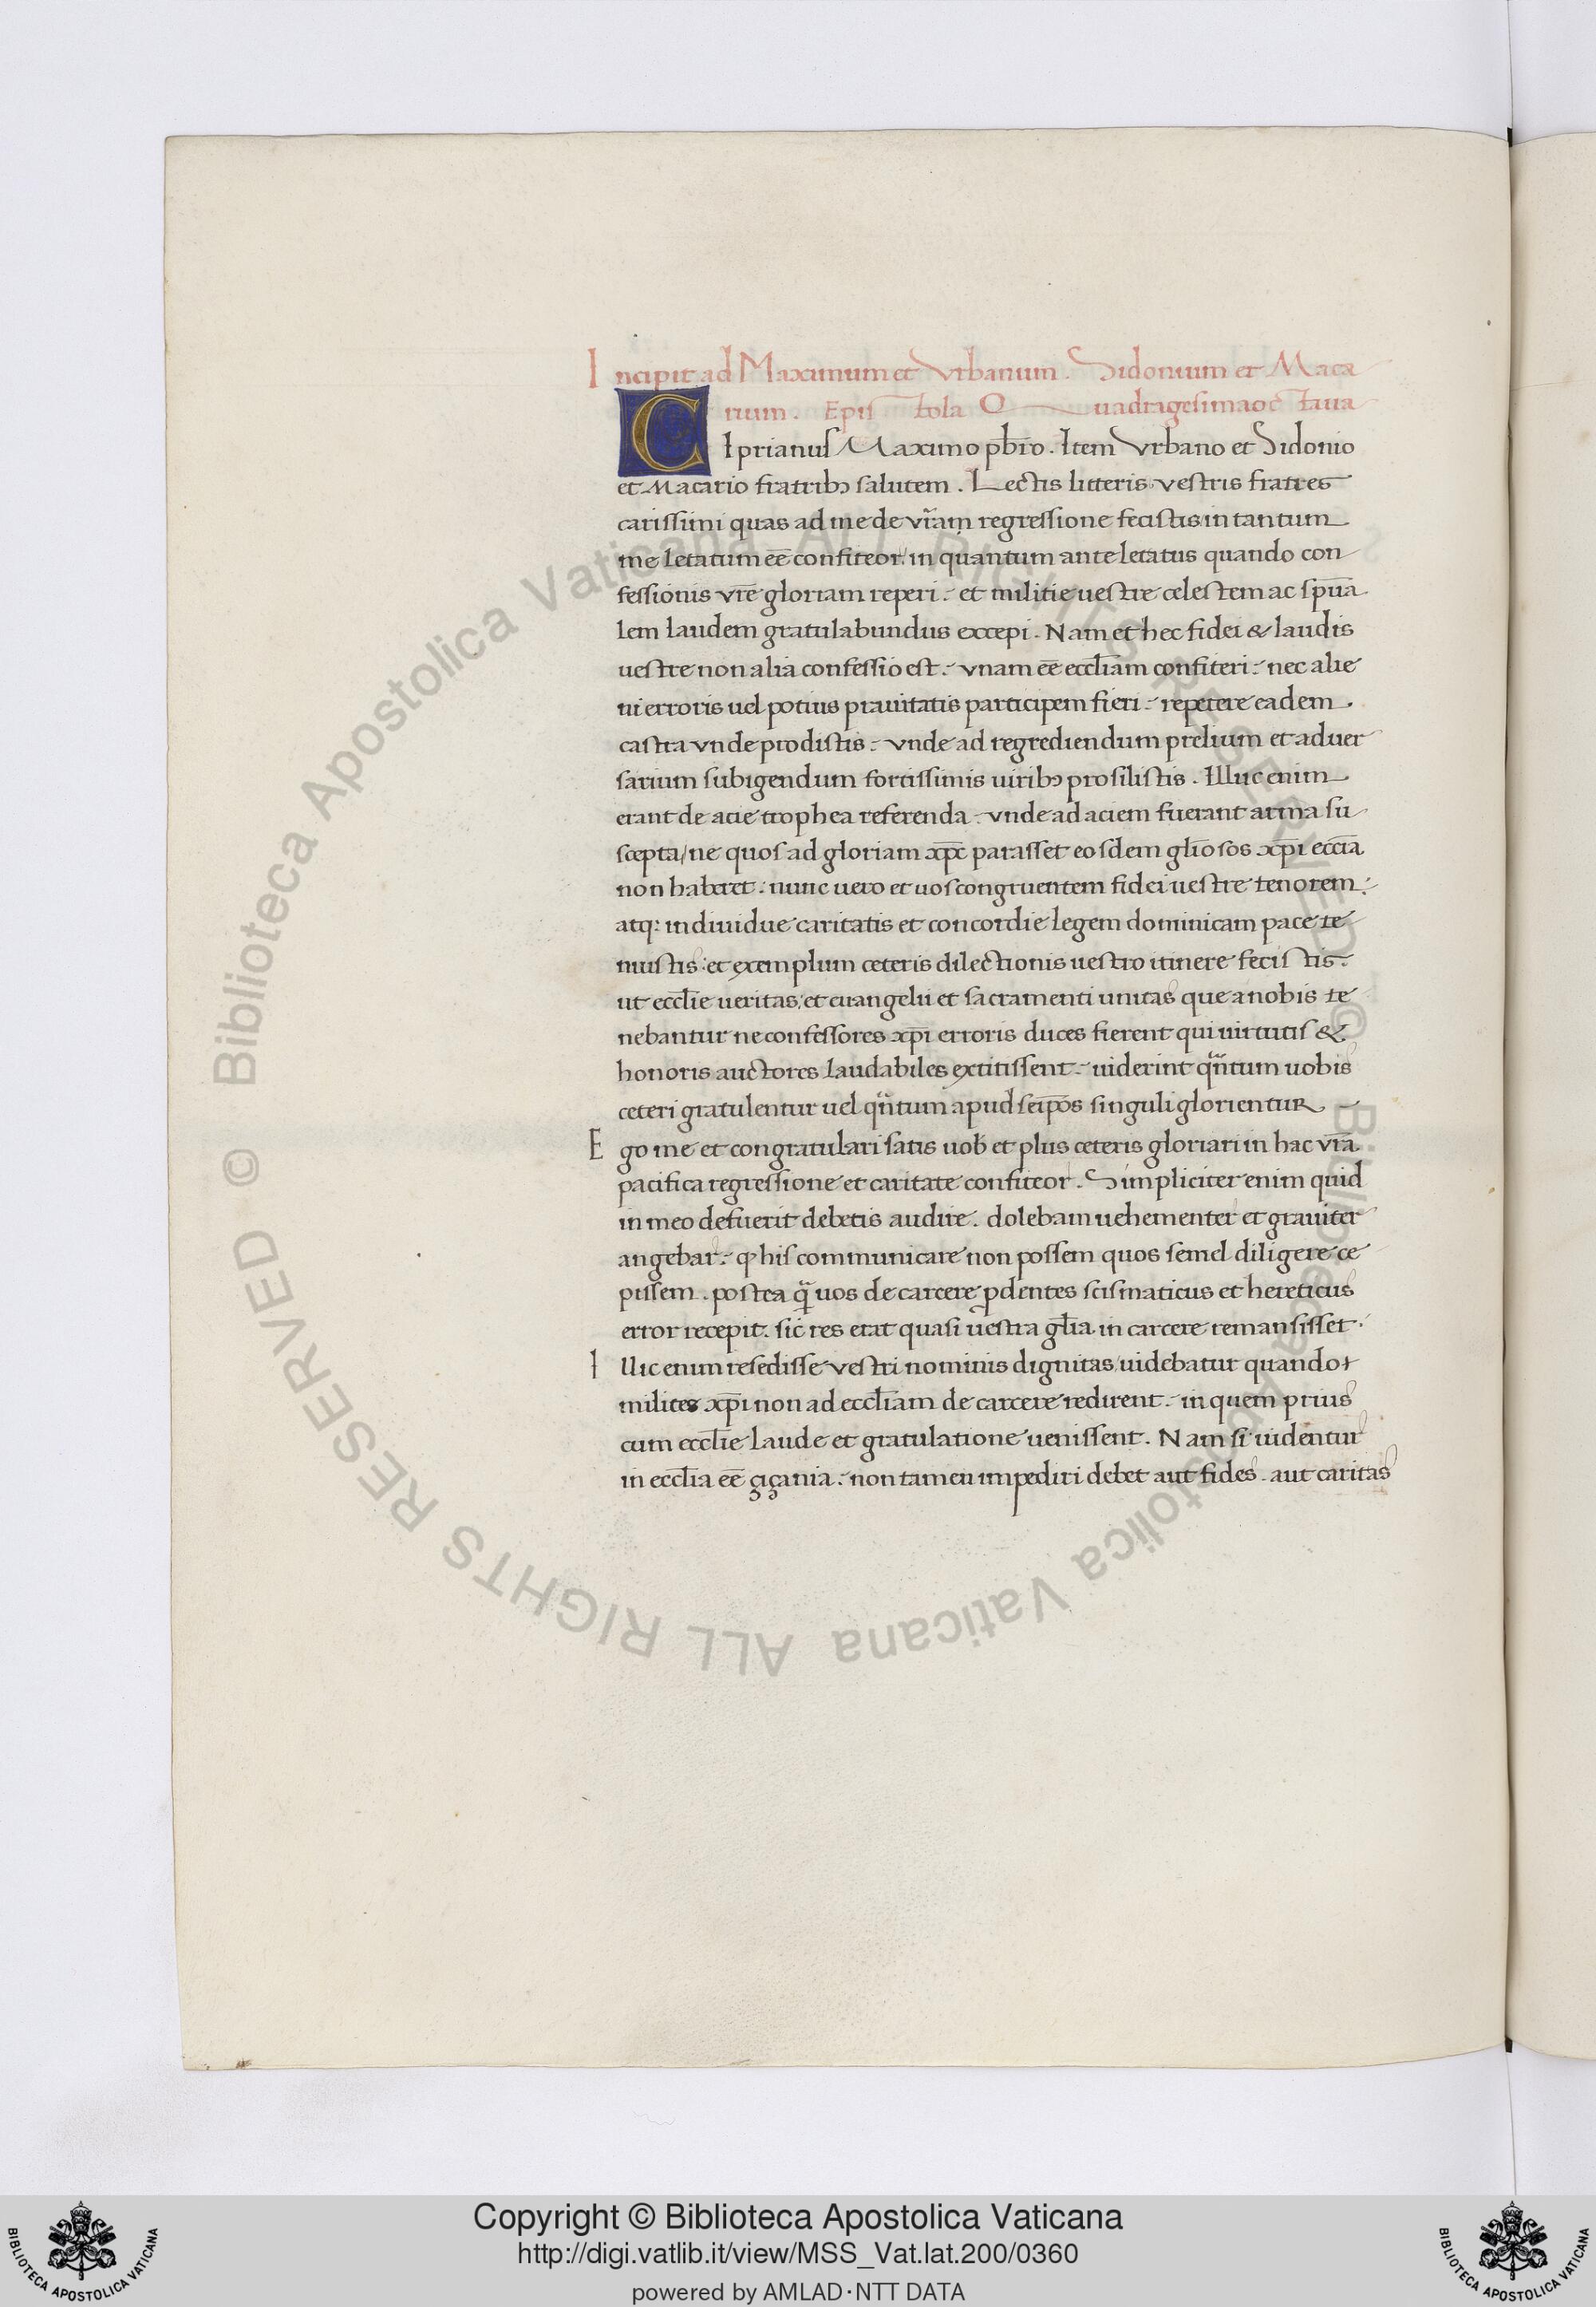 Incipit ad Maximum et Vrbanum. Sidonium et Maca
rium. Epistola Quadragesimaoctaua
Ciprianus Maximo pb̅ro. Item Vrbano et Sidonio
et Macario fratribꝫ salutem. Lectis litteris vestris fratres
carissimi quas ad me de vr̅am regressione fecistis in tantum
me letatum ee̅ confiteor / in quantum ante letatus quando con
fessionis vr̅e gloriam reperi. et militie uestre celestem ac spu̅a
lem laudem gratulabundus excepi. Nam et hec fidei & laudis
uestre non alia confessio est. vnam ee̅ eccl̅iam confiteri. nec alie
ni erroris uel potius prauitatis participem fieri. repetere eadem
castra vnde prodistis. vnde ad regrediendum prelium et aduer
sarium subigendum fortissimis uiribꝫ prosilistis. Illuc enim
erant de acie trophea referenda. vnde ad aciem fuerant arma su
scepta / ne quos ad gloriam xp̅c parasset eosdem gl̅iosos xp̅i ecc̅ia
non haberet. nunc uero et uos congruentem fidei uestre tenorem:
atq: indiuidue caritatis et concordie legem dominicam pace te
nuistis: et exemplum ceteris dilectionis uestro itinere fecistis.
ut eccl̅ie ueritas, et euangelii et sacramenti unitas que a nobis te
nebantur ne confessores xp̅i erroris duces fierent qui uirtutis &
honoris auctores laudabiles extitissent. uiderint qn̅tum uobis
ceteri gratulentur uel qn̅tum apud seip̅os singuli glorientur
Ego me et congratulari satis uob̅ et plus ceteris gloriari in hac vr̅a
pacifica regressione et caritate confiteor. Simpliciter enim quid
in meo defuerit debetis audire. dolebam uehementer et grauiter
angebar. ꝙ his communicare non possem quos semel diligere ce
pissem. postea q̅ uos de carcere ꝓdentes scismaticus et hereticus
error recepit. sic res erat quasi uestra gl̅ia in carcere remansisset.
Illic enim resedisse vestri nominis dignitas uidebatur quando
milites xp̅i non ad eccl̅iam de carcere redirent. in quem prius
cum eccl̅ie laude et gratulatione uenissent. Nam si uidentur
in eccl̅ia ee̅ çiçania. non tamen impediri debet aut fides. aut caritas
© Biblioteca Apostolica Vaticana ALL RIGHTS RESERVED © Biblioteca Apostolica Vaticana ALL RIGHTS RESERVED
Copyright © Biblioteca Apostolica Vaticana
http://digi.vatlib.it/view/MSS_Vat.lat.200/0360
powered by AMLAD·NTT DATA
BIBLIOTECA APOSTOLICA VATICANA
BIBLIOTECA APOSTOLICA VATICANA